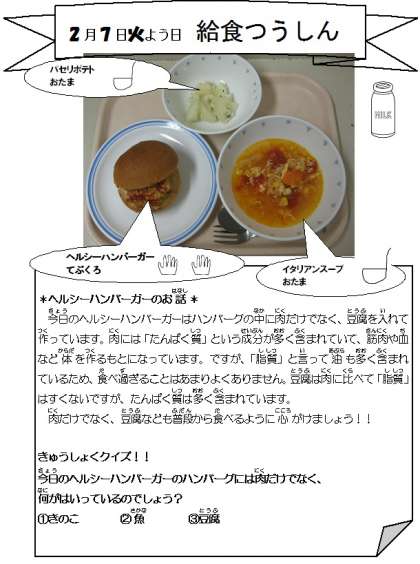 2月7日火よう日 給食つうしん
パセリポテト
おたま
MILK
ヘルシーハンバーガー
てぶくろ
イタリアンスープ
おたま
*ヘルシーハンバーガーのお話*
今日のヘルシーハンバーガーはハンバーグの中に肉だけでなく、豆腐を入れて
作っています。肉には「たんぱく質」という成分が多く含まれていて、筋肉や血
など体を作るもとになっています。ですが、「脂質」と言って油も多く含まれ
ているため、食べ過ぎることはあまりよくありません。豆腐は肉に比べて「脂質」
はすくないですが、たんぱく質は多く含まれています。
肉だけでなく、豆腐なども普段から食べるように心がけましょう!!
きゅうしょくクイズ!!
今日のヘルシーハンバーガーのハンバーグには肉だけでなく、
何がはいっているのでしょう?
①きのこ ②魚 ③豆腐